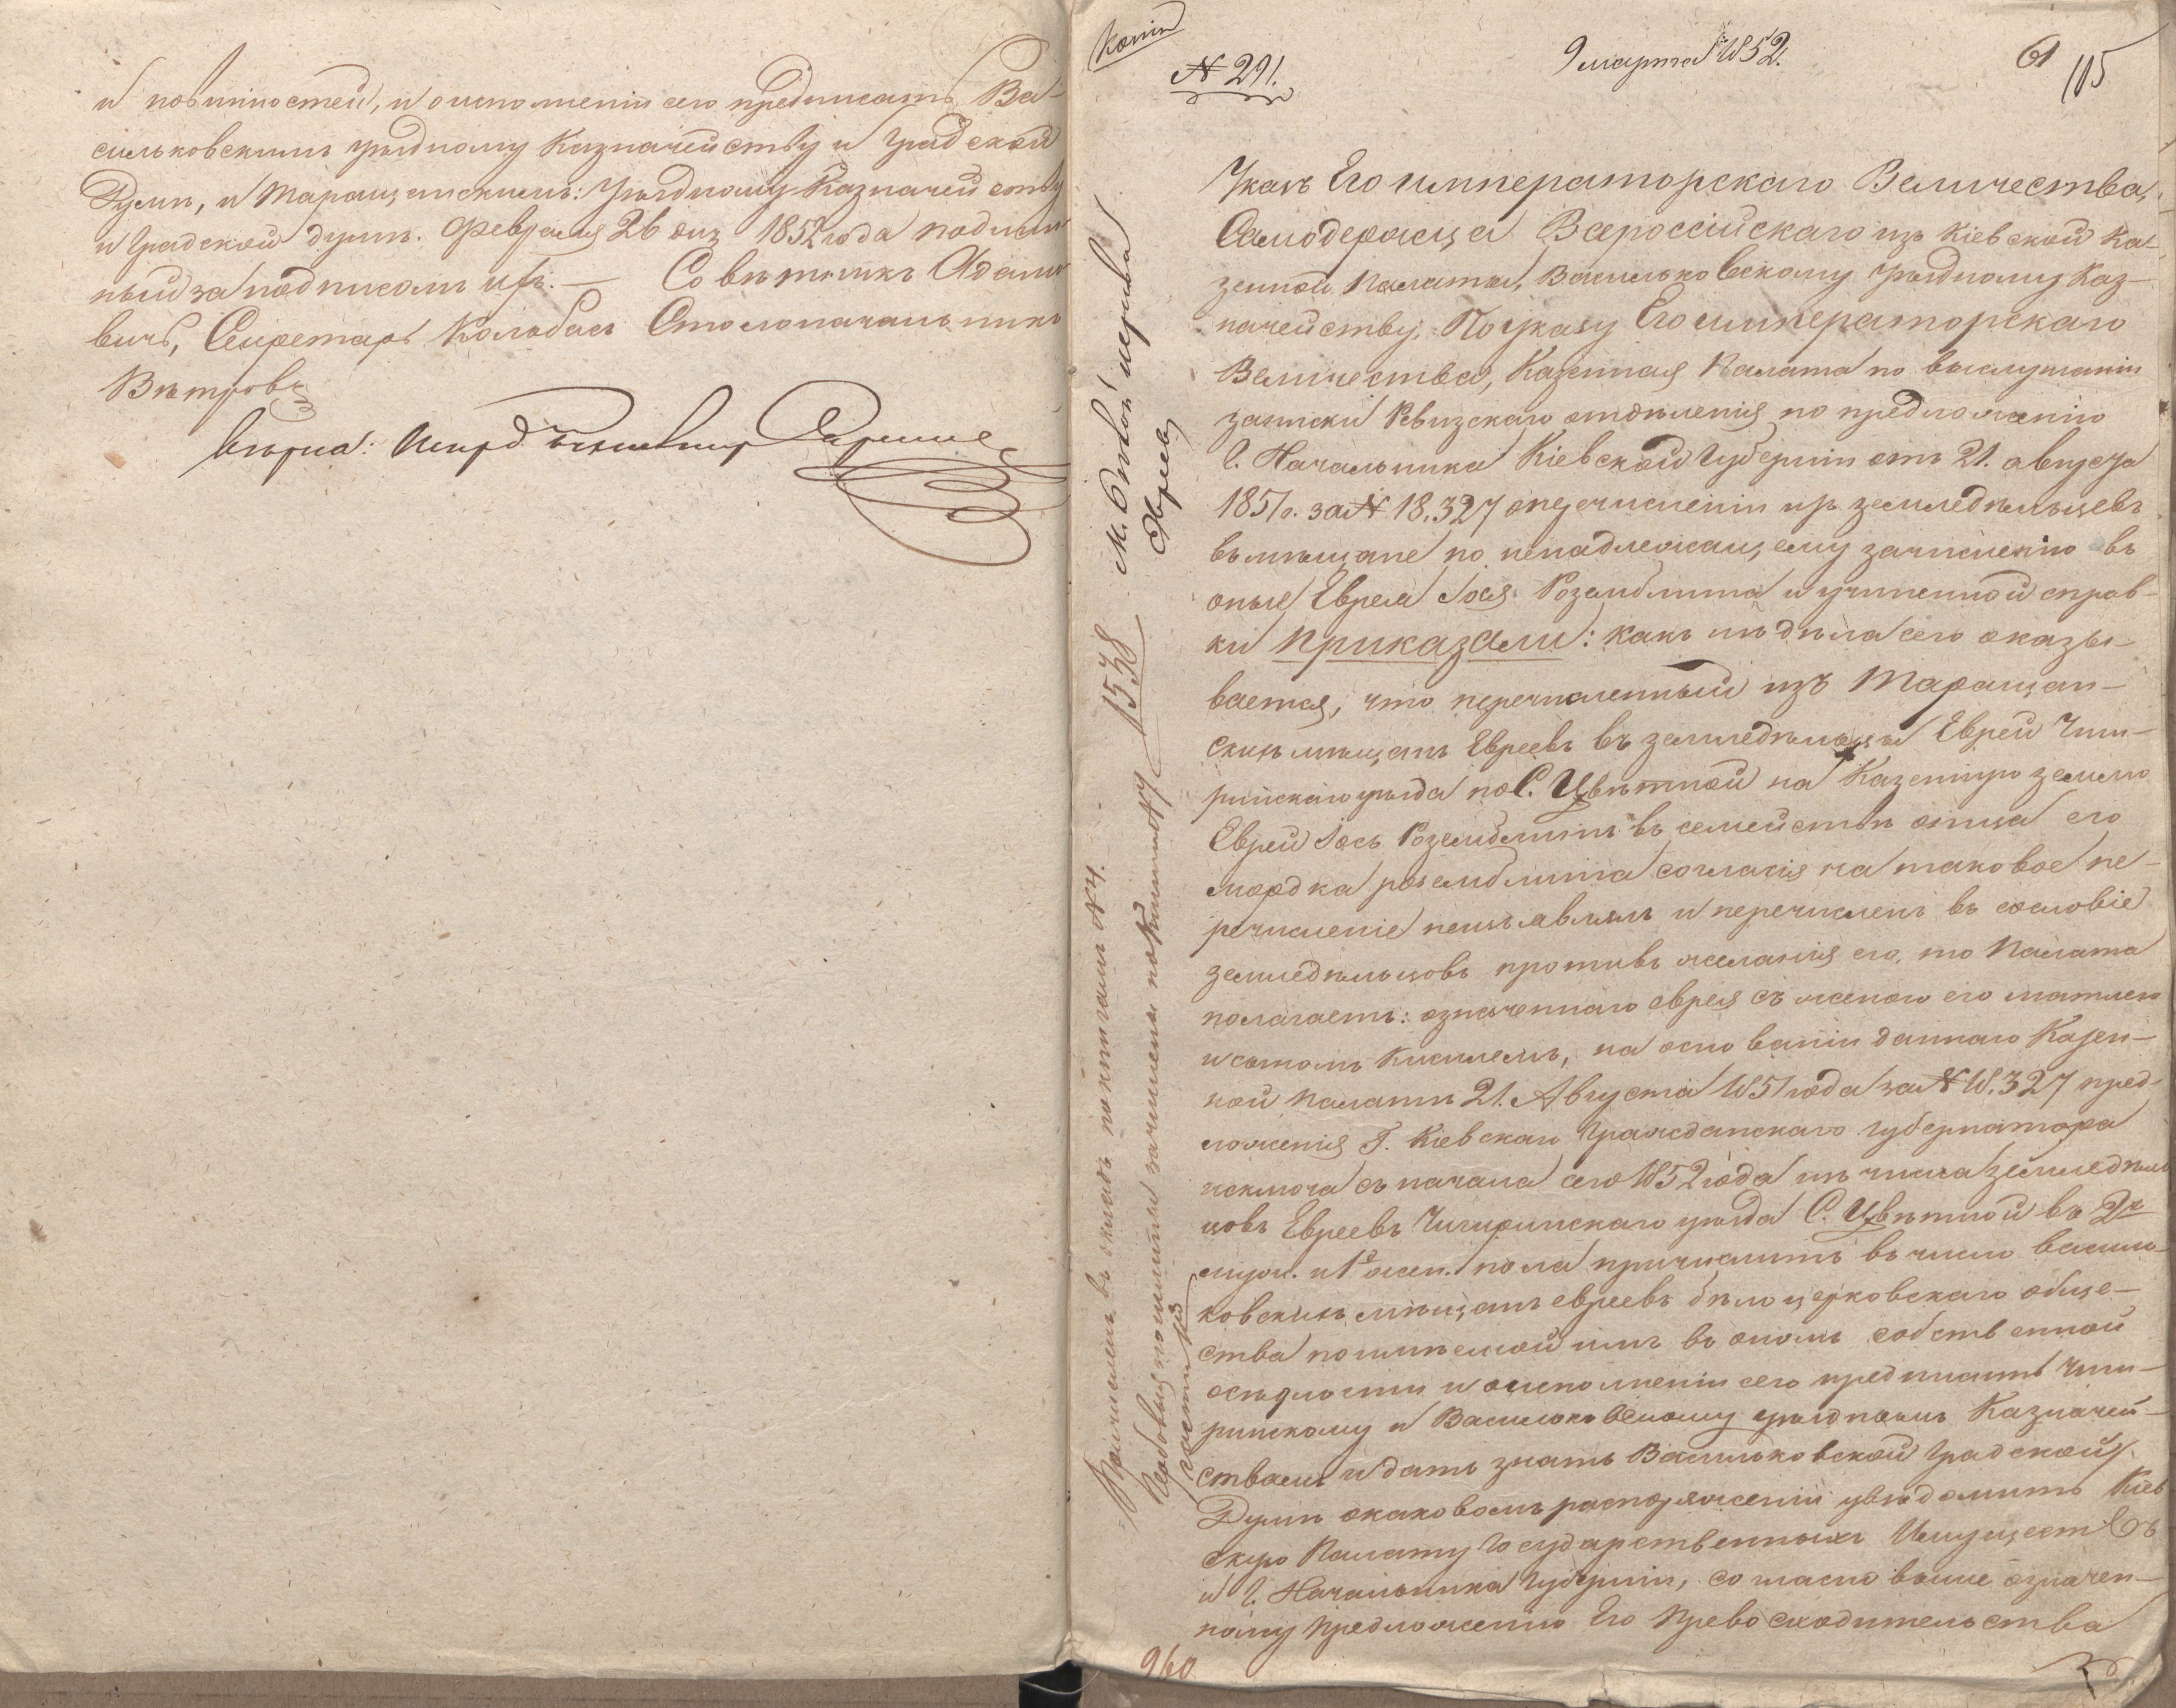 и повинностей, и о исполненіи сего предписать Ва-
сильковскимъ уѣздному Казначейству и Градской
Думѣ, и Таращанскимъ: Уѣздному Казначейству
и Градской думѣ. Февраля 26 дня 1852 года подлин
ный за подписомъ ихъ. — Совѣтникъ Адамо
вичъ, Секретарь Колабасъ Столоначальникъ
Вѣтровъ
Вѣрно:
Копія
№ 291.
9 марта 1852.
61
105
Указъ Его императорскаго Величества,
Самодержца Всероссійскаго изъ Кіевской Ка-
зенной Палаты, Васильковскому Уѣздному Каз-
начейству, По указу Его императорскаго
Величества, Казенная Палата по выслушаніи
записки Ревизскаго отдѣленія по предложенію
Г. Начальника Кіевской Губерніи отъ 21. августа
1851 г. за № 18.327 о перечисленіи изъ земледѣльцевъ
въ мѣщане по ненадлежащему зачисленію въ
оные Еврея Іося Розенблита и учиненной справ-
ки приказали: какъ изъ дѣла сего оказы-
вается, что перечисленный изъ Таращан-
скихъ мѣщанъ Евреевъ въ земледѣльцы Еврей Чиги-
ринскаго уѣзда по С. Цвѣтной на Казенную землю
Еврей Іось Розенблитъ въ семействѣ отца его
Мордка Розенблита согласія на таковое пе-
речисленіе неизъявлялъ и перечисленъ въ сословіе
земледѣльцовъ противъ желанія его, то Палата
полагаетъ: означеннаго еврея съ женою его
и сыномъ, на основаніи даннаго Казен-
ной Палатѣ 21. Августа 1851 года за № 18.327 пред-
ложенія Г. Кіевскаго Гражданскаго Губернатора
исключа съ начала сего 1852 года изъ числа земледѣль
цовъ Евреевъ Чигиринскаго уѣзда С. Цвѣтной въ 2х
муж. и 1й жен. пола причислить въ число Василь-
ковскихъ мѣщанъ евреевъ бѣлоцерковскаго обще-
ства по имѣемой имъ въ ономъ собственной
осѣдлости и о исполненіи сего предписать Чиги-
ринскому и Васильковскому уѣзднымъ Казначей-
ствамъ и дать знать Васильковской Градской
Думѣ о каковомъ распоряженіи увѣдомить Кіев
скую Палату Государственныхъ Имуществъ
и Г. Начальника Губерніи, согласно выше означен-
ному предложенію Его Превосходительства
м. Бѣлой церкви
Евреевъ
1538
Причисленъ въ окладъ по книгамъ № 4.
960